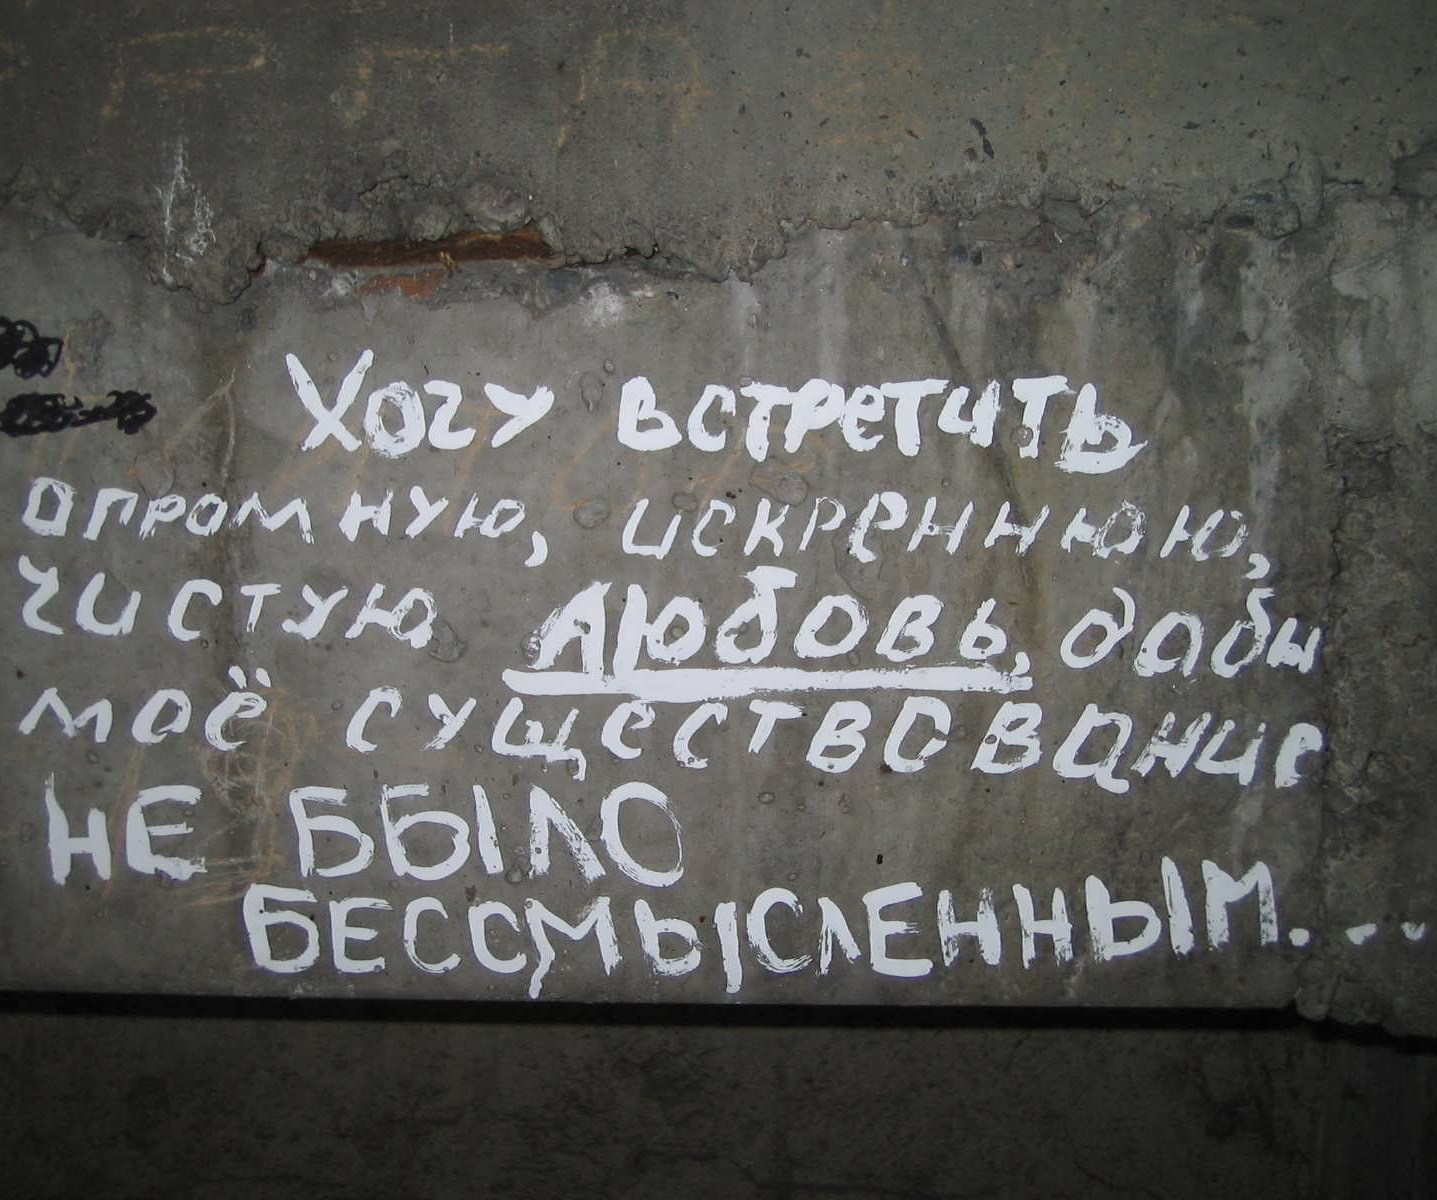 Хочу встретить
опромную, искреннюю,
чистую любовь, дабы
моё существование
НЕ БЫЛО
БЕССМЫСЛЕННЫМ...